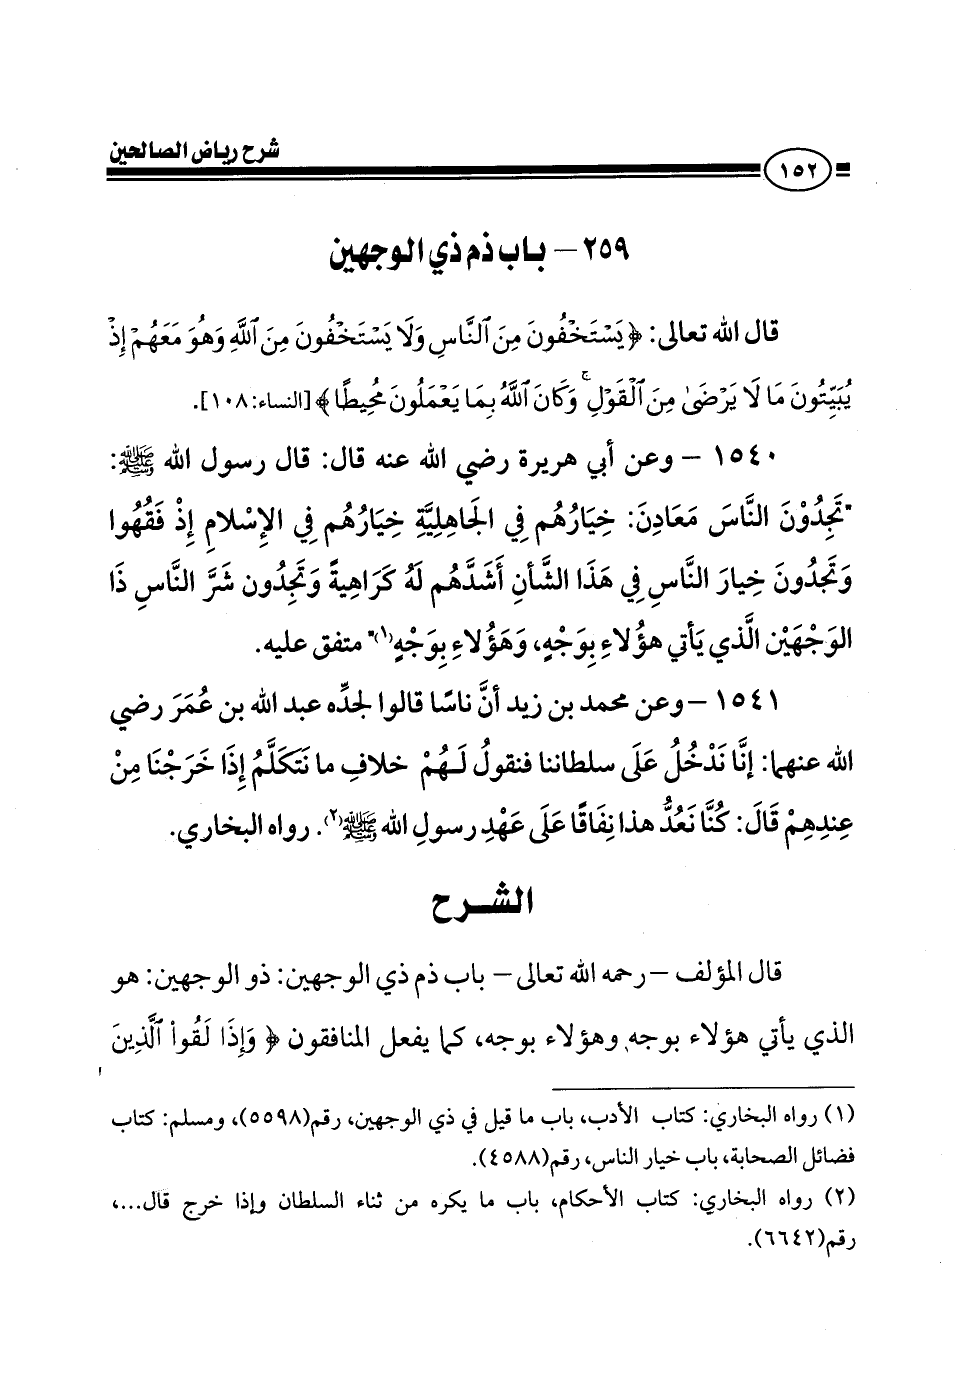 شرح رياض الصالحين
١٥٢
٢٥٩ – باب ذم ذي الوجهين
قال الله تعالى: ﴿ يَسْتَخْفُونَ مِنَ ٱلنَّاسِ وَلَا يَسْتَخْفُونَ مِنَ ٱللَّهِ وَهُوَ مَعَهُمْ إِذْ
يُبَيِّتُونَ مَا لَا يَرْضَىٰ مِنَ ٱلْقَوْلِ ۚ وَكَانَ ٱللَّهُ بِمَا يَعْمَلُونَ مُحِيطًا ﴾ [النساء: ١٠٨].
١٥٤٠ – وعن أبي هريرة رضي الله عنه قال: قال رسول الله ﷺ:
"تَجِدُوْنَ النَّاسَ مَعَادِنَ: خِيَارُهُم فِي الجَاهِلِيَّةِ خِيَارُهُم فِي الإِسْلامِ إِذْ فَقُهُوا
وَتَجِدُونَ خِيارَ النَّاسِ فِي هَذَا الشَّأنِ أَشَدَّهُم لَهُ كَرَاهِيةً وَتَجِدُون شَرَّ النَّاسِ ذَا
الوَجْهَيْنِ الَّذي يَأتي هؤُلاءِ بِوَجْهٍ، وَهَؤُلاءِ بِوَجْهٍ(١)" متفق عليه.
١٥٤١ – وعن محمد بن زيد أنَّ ناسًا قالوا لجدِّه عبد الله بن عُمَرَ رضي
الله عنهما: إنَّا نَدْخُلُ عَلَى سلطاننا فنقولُ لَهُمْ خلافِ ما نَتَكَلَّمُ إِذَا خَرَجْنَا مِنْ
عِندِهِمْ قَالَ: كُنَّا نَعُدُّ هذا نِفَاقًا عَلَى عَهْدِ رسولِ الله ﷺ(٢). رواه البخاري.
الشرح
قال المؤلف –رحمه الله تعالى– باب ذم ذي الوجهين: ذو الوجهين: هو
الذي يأتي هؤلاء بوجه وهؤلاء بوجه، كما يفعل المنافقون ﴿ وَإِذَا لَقُواْ ٱلَّذِينَ
(١) رواه البخاري: كتاب الأدب، باب ما قيل في ذي الوجهين، رقم(٥٥٩٨)، ومسلم: كتاب
فضائل الصحابة، باب خيار الناس، رقم(٤٥٨٨).
(٢) رواه البخاري: كتاب الأحكام، باب ما يكره من ثناء السلطان وإذا خرج قال...،
رقم(٦٦٤٢).